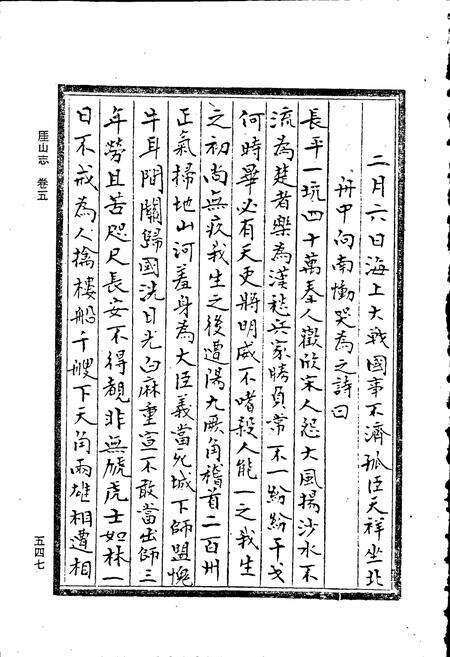 二月六日海上大戰國事不濟孤臣天祥坐北
舟中向南慟哭為之詩曰
長平一坑四十萬秦人歡欣宋人怨大風揚沙水不
流為楚者樂為漢愁兵家勝負常不一紛紛干戈
何時畢必有天吏將明威不嗜殺人能一之我生
之初尚無疚我生之後遭陽九厥角稽首二百州
正氣掃地山河羞身為大臣義當死城下師盟愧
牛耳間關歸國洗日光白麻重宣不敢當出師三
年勞且苦咫尺長安不得覩非無虓虎士如林一
日不戒為人擒樓船千艘下天角兩雄相遭相
厓山志 卷五
五四七